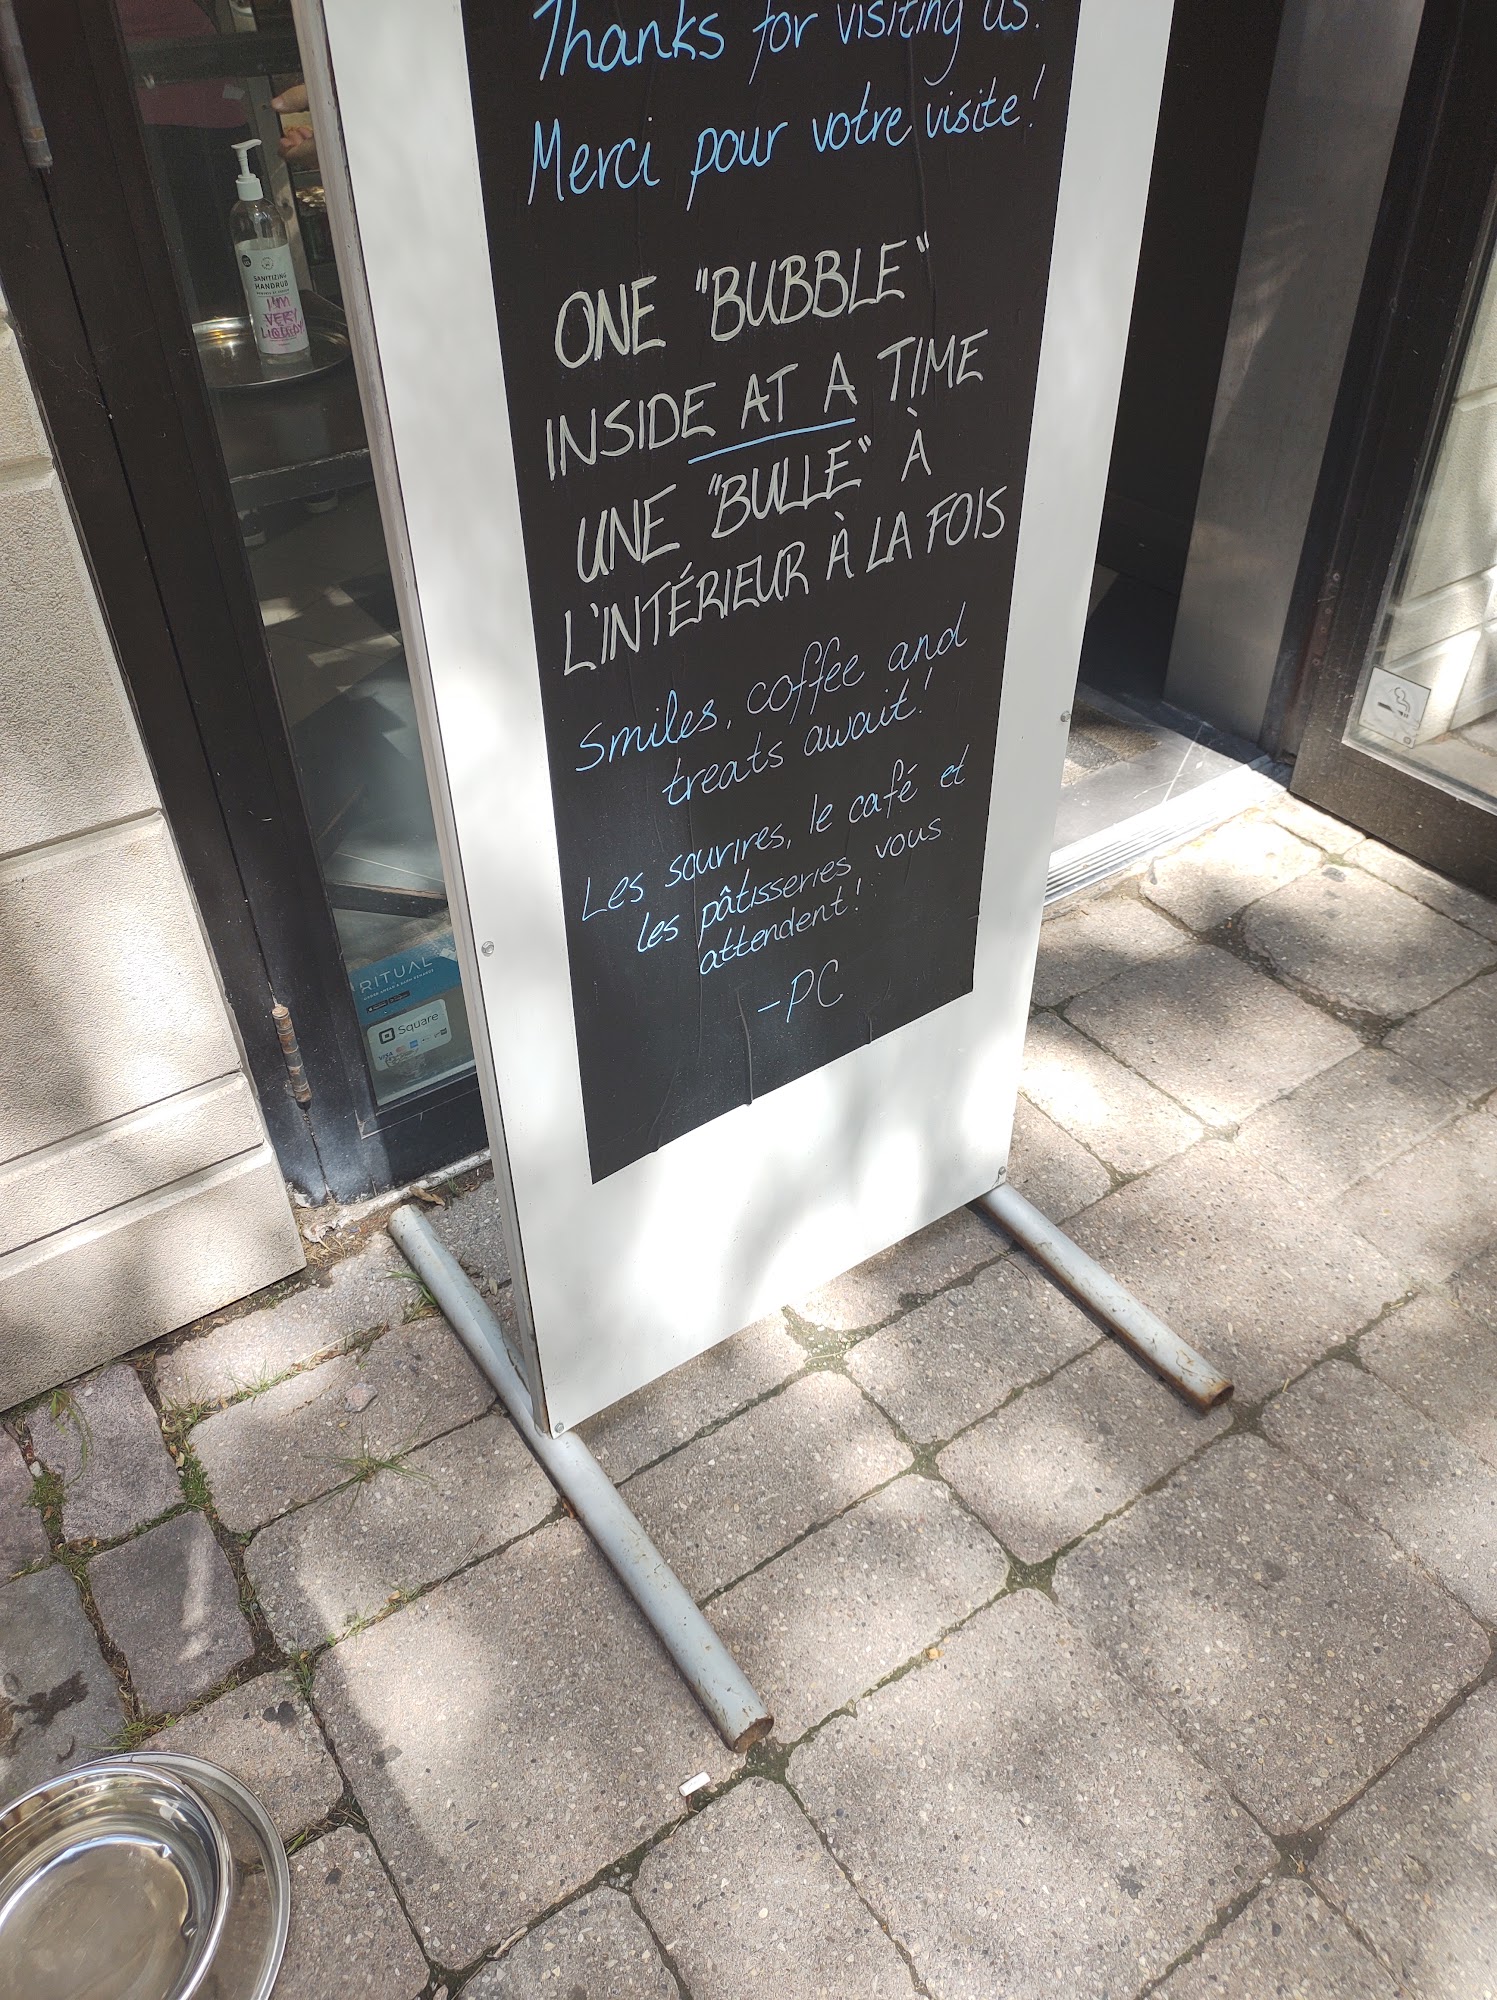 Thanks for visiting us!
Merci pour votre visite!
ONE "BUBBLE"
INSIDE AT A TIME
UNE "BULLE" À
L'INTÉRIEUR À LA FOIS
Smiles, coffee and
treats await!
Les sourires, le café et
les pâtisseries vous
attendent!
-PC
SANITIZING
HANDRUB
I'M
VERY
LIQUIDY
RITUAL
Square
VISA